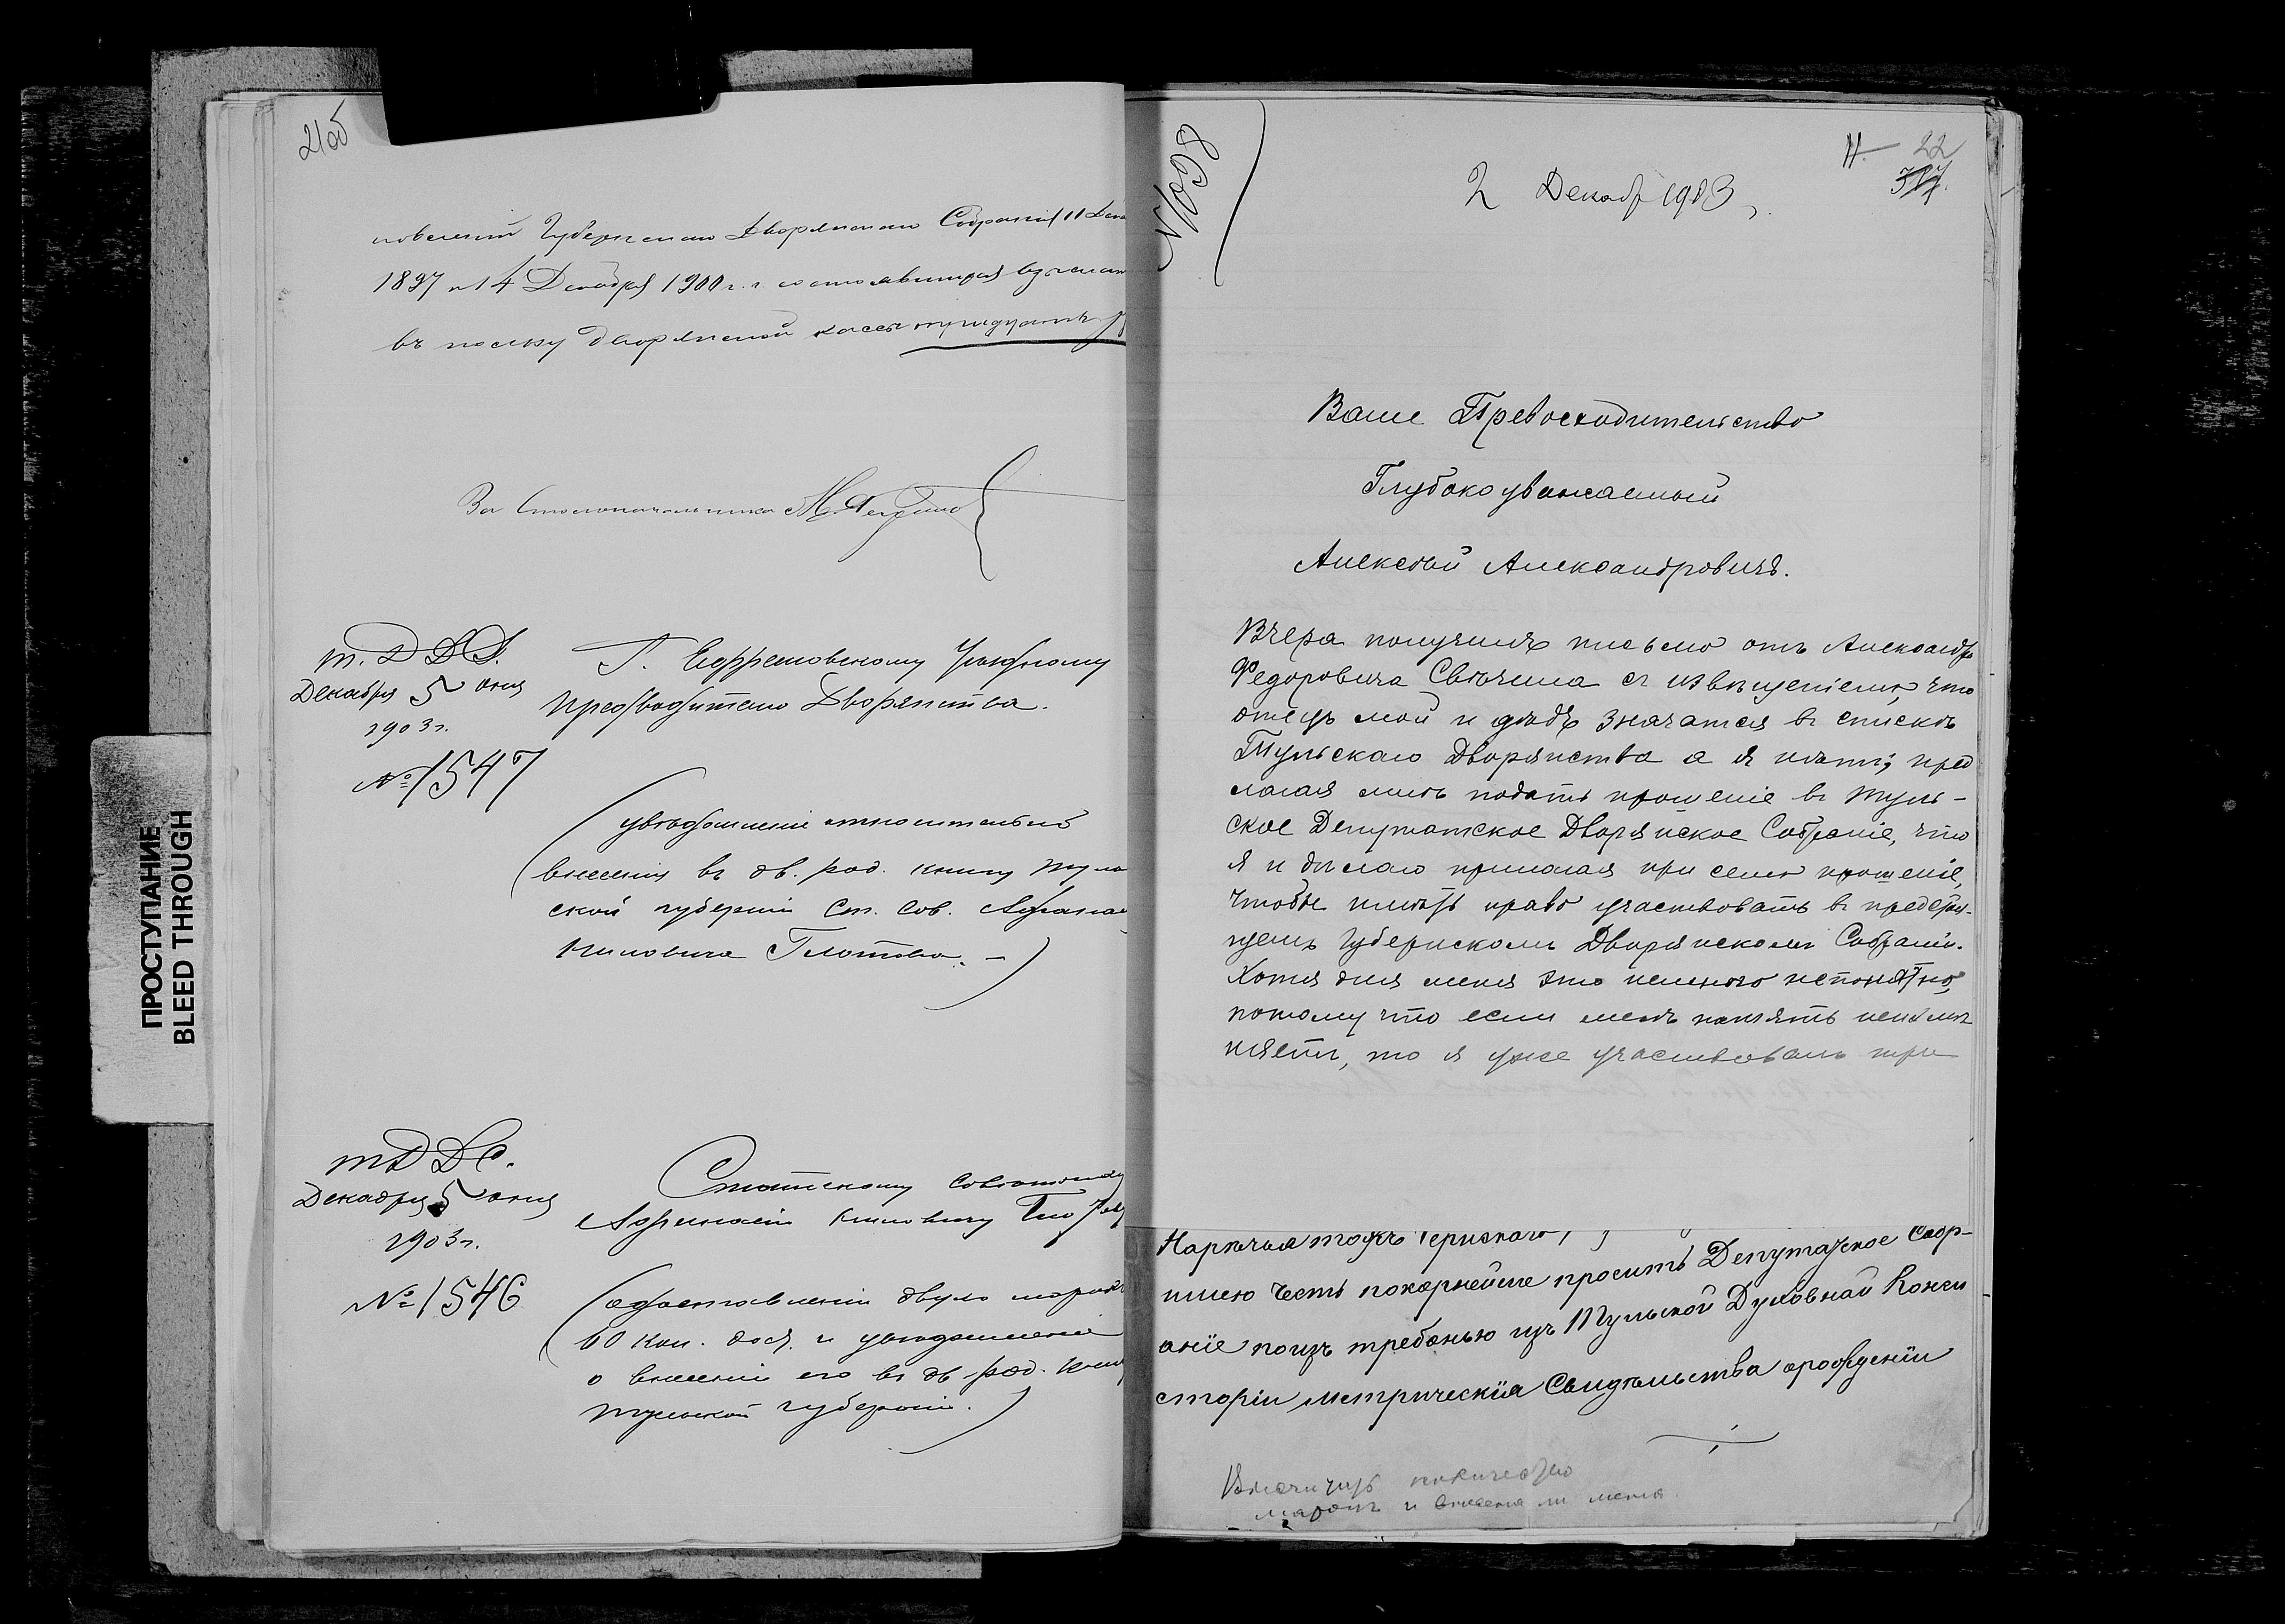 21об
новленій Губернскаго Дворянскаго Собранія 11 Дек
1897 и 14 Декабря 1900 г.г. состоявшихся взыскан
въ пользу дворянской кассы тридцать р
За Столоначальника
Т. Д. Д. С.
Декабря 5 дня
1903 г.
№ 1547
Г. Ефремовскому Уѣздному
Предводителю Дворянства.
(увѣдомленіе относительно
внесенія въ дв. род. книгу Туль
ской губерніи Ст. Сов. Афана
Ниловича Глотова. –)
Т Д Д С.
Декабря 5 дня
1903 г.
№ 1546
Статскому Совѣтнику
Афанасію Ниловичу Глотову
(о доставленіи двухъ марокъ
60 коп. дост. и увѣдомленіе
о внесеніи его въ дв. род. книгу
Тульской губерніи.)
ПРОСТУПАНИЕ
BLEED THROUGH
N1098
22
317.
2 Декабр 1903
Ваше Превосходительство
Глубокоуважаемый
Алексѣй Александровичъ.
Вчера получилъ письмо отъ Александр
Федоровича Свѣчина съ извѣщеніемъ, что
отецъ мой и дѣдъ значатся въ спискѣ
Тульскаго Дворянства а я нѣтъ; пред
лагая мнѣ подать прошеніе въ Туль-
ское Депутатское Дворянское Собраніе, что
я и дѣлаю прилагая при семъ прошеніе,
чтобы имѣть право участвовать въ предстоя-
щемъ Губернскомъ Дворянскомъ Собраніи.
Хотя для меня это немного непонятно,
потому что если меня память не измѣ
няетъ, то я уже участвовалъ при
имѣю честь покорнейше просить Депутатское Собр-
аніе поизъ требанью изъ Тульской Духовнай Консис
сторіи метрическія Свидѣльства орожденіи
количество
марокъ и внесена ли